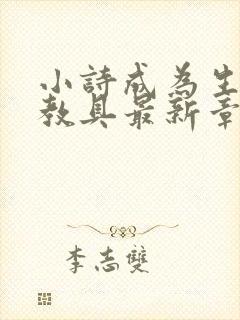 小詩成為生
教具最新章
李志雙